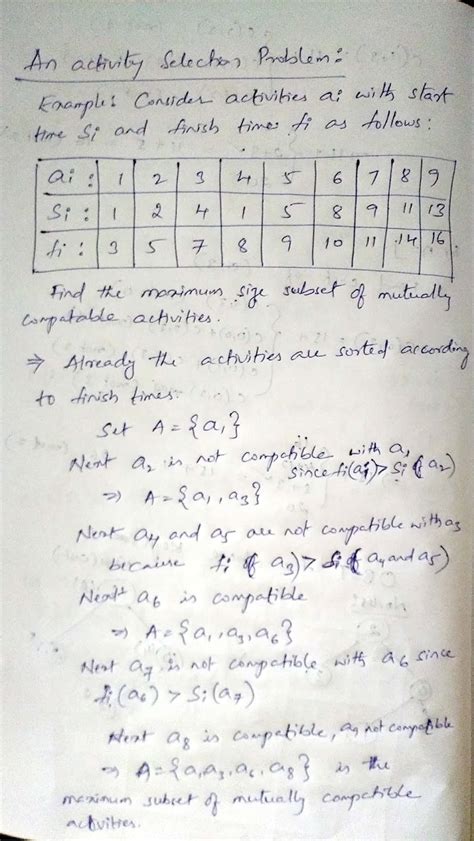 An activity Selection Problem:
Example: Consider activities ai with start
time Si and finish times fi as follows:
ai : 1 2 3 4 5 6 7 8 9
Si : 1 2 4 1 5 8 9 11 13
fi : 3 5 7 8 9 10 11 14 16
Find the maximum size subset of mutually
compatable activities.
⇒ Already the activities are sorted according
to finish times.
Set A = {a1}
Next a2 is not compatible with a1
since fi(a1) > Si(a2)
⇒ A = {a1, a3}
Next a4 and a5 are not compatible with a3
because fi of a3) > Si of a4 and a5)
Next a6 is compatible
⇒ A = {a1, a3, a6}
Next a7 is not compatible with a6 since
fi(a6) > Si(a7)
Next a8 is compatible, a9 not compatible
⇒ A = {a1 a3, a6, a8} is the
maximum subset of mutually compatible
activities.